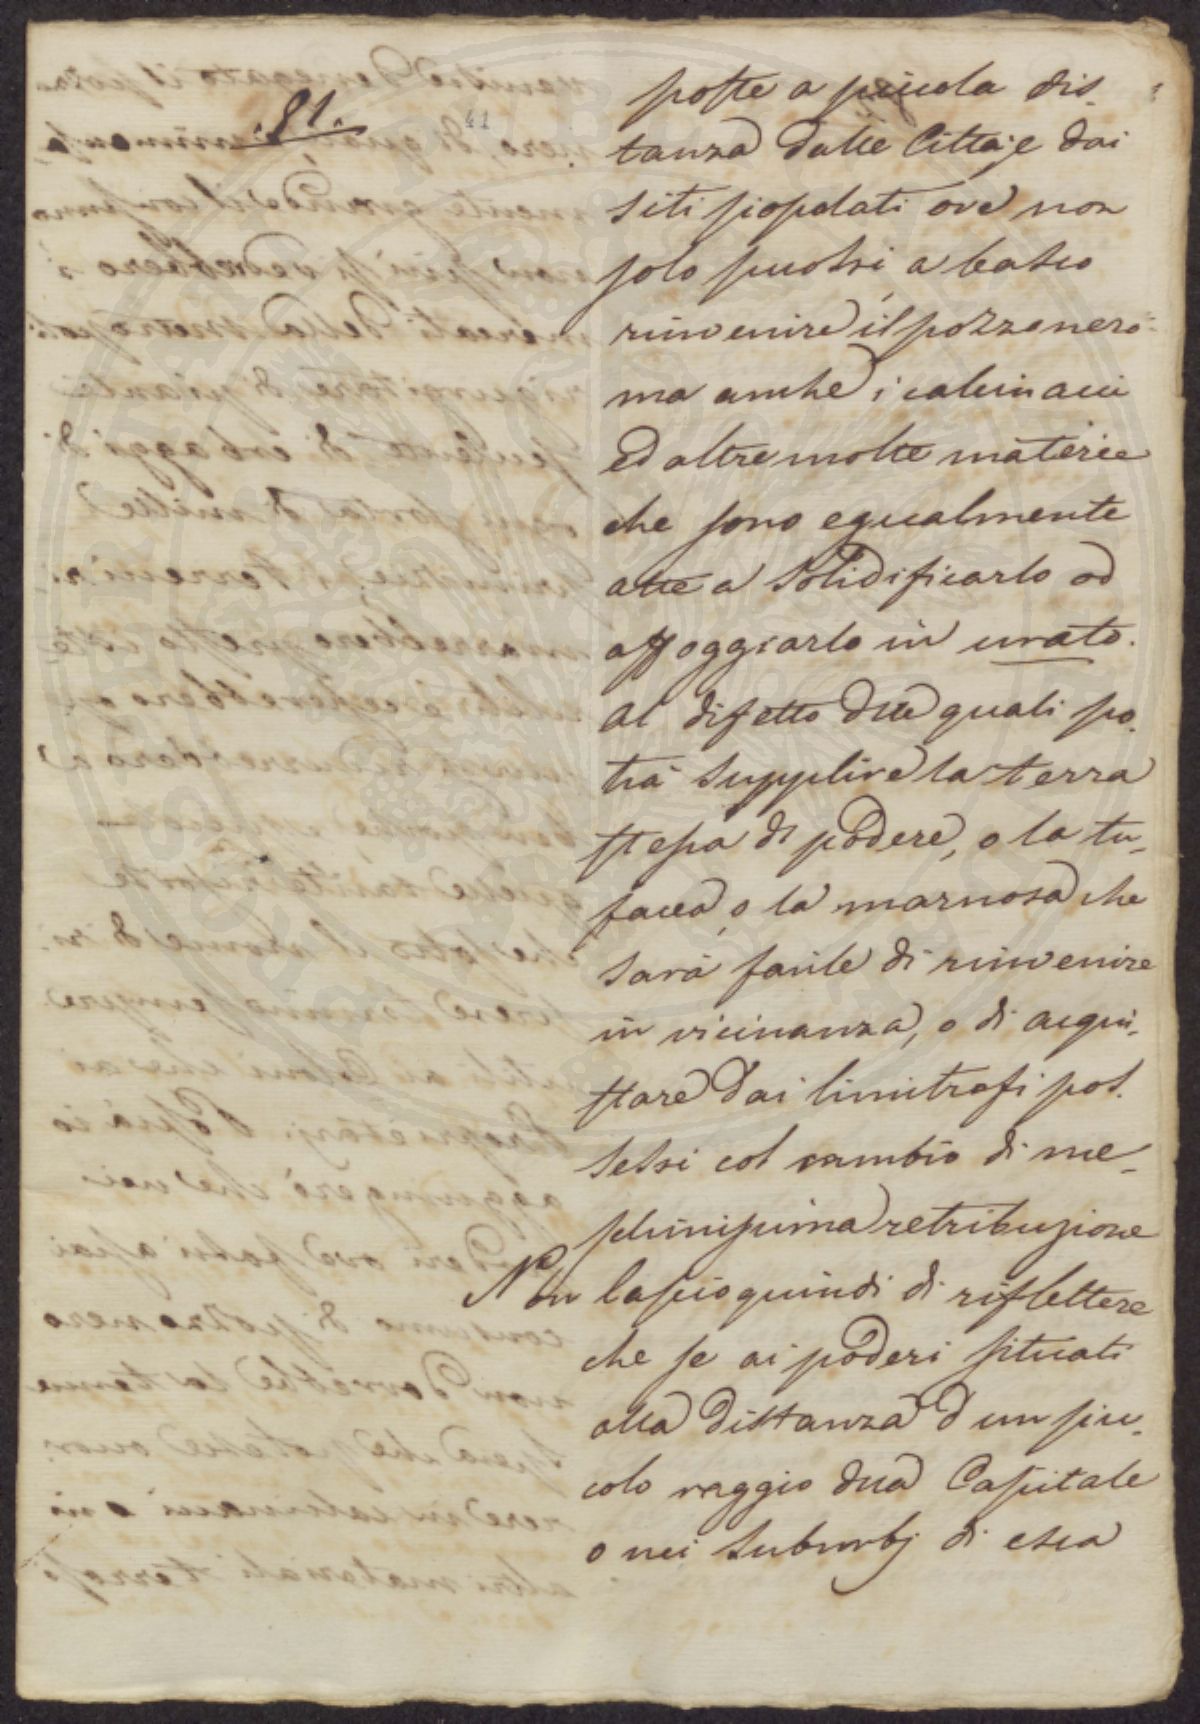 .81.
41
poste a piccola dis-
tanza dalle Città, e dai
siti piopolati ove non
solo puossi a basso
rinvenire il pozzonero
ma anche i calcinacci
ed altre molte materie
che sono egualmente
atte a solidificarlo od
affoggiarlo in urato.
Al difetto delle quali po-
trà supplire la terra
stessa di podere, o la tu-
facea, o la marnosa che
sarà facile di rinvenire
in vicinanza, o di acqui-
stare dai limitrofi pos-
sessi col cambio di me-
schinissima retribuzione
Non lascio quindi di riflettere
che se ai poderi situati
alla distanza d'un pic-
colo raggio dalla Capitale
o nei suburbj di essa